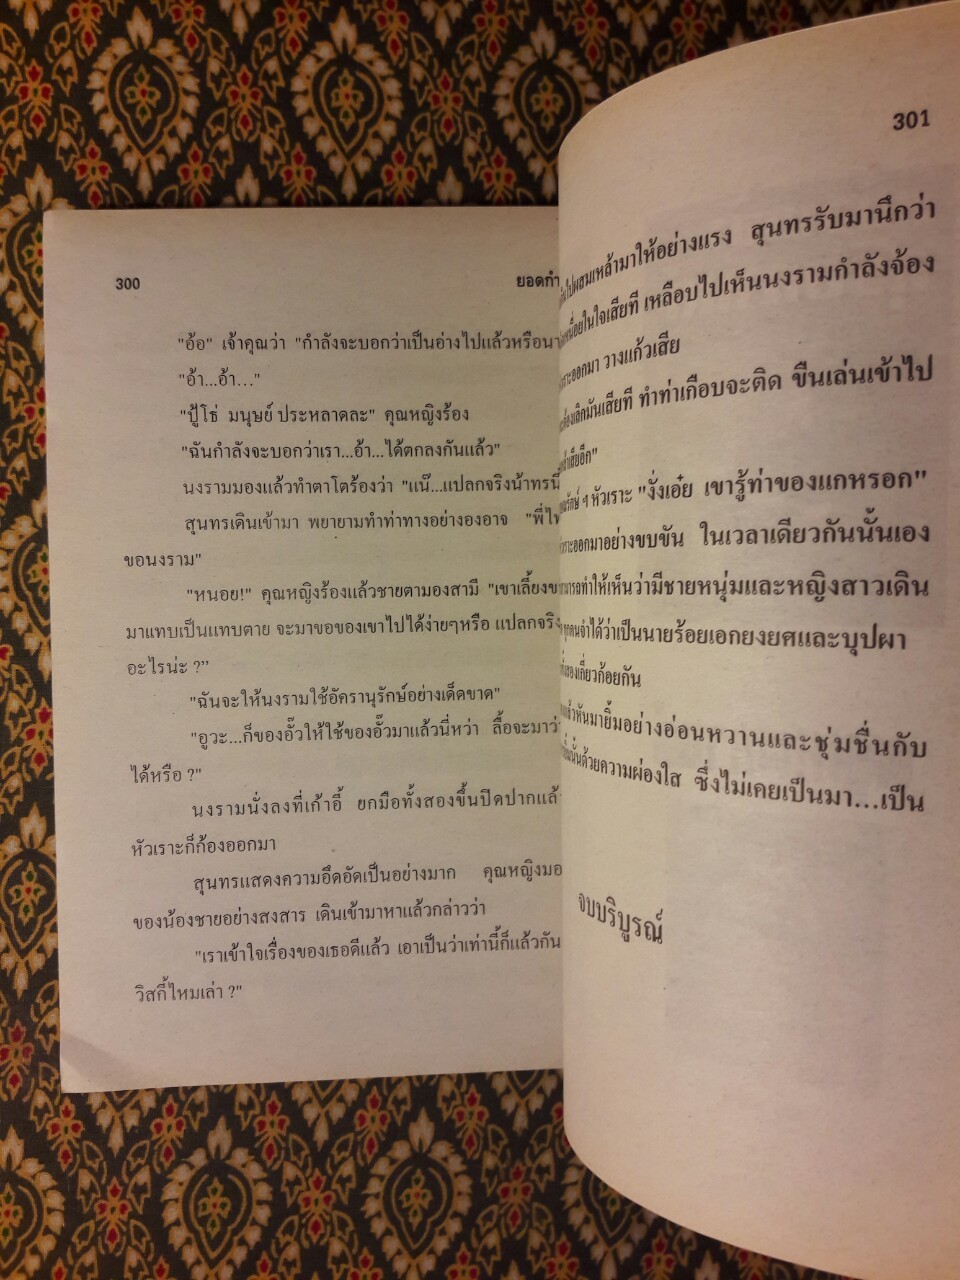 300
ยอดกำ
"อ้อ" เจ้าคุณว่า "กำลังจะบอกว่าเป็นอ่างไปแล้วหรือนา
"อ้า...อ้า..."
"ปู้โธ่ มนุษย์ ประหลาดละ" คุณหญิงร้อง
"ฉันกำลังจะบอกว่าเรา...อ้า...ได้ตกลงกันแล้ว"
นงรามมองแล้วทำตาโตร้องว่า "แน๊...แปลกจริงน้าทรนี่
สุนทรเดินเข้ามา พยายามทำท่าทางอย่างองอาจ "พี่ไพ
ขอนงราม"
"หนอย!" คุณหญิงร้องแล้วชายตามองสามี "เขาเลี้ยงขอ
มาแทบเป็นแทบตาย จะมาขอของเขาไปได้ง่ายๆหรือ แปลกจริง
อะไรน่ะ ?"
"ฉันจะให้นงรามใช้อัครานุรักษ์อย่างเด็ดขาด"
"อูวะ...ก็ของอั๊วให้ใช้ของอั๊วมาแล้วนี่หว่า ลื้อจะมาว่า
ได้หรือ ?"
นงรามนั่งลงที่เก้าอี้ ยกมือทั้งสองขึ้นปิดปากแล้ว
หัวเราะก็ก้องออกมา
สุนทรแสดงความอึดอัดเป็นอย่างมาก คุณหญิงมอ
ของน้องชายอย่างสงสาร เดินเข้ามาหาแล้วกล่าวว่า
"เราเข้าใจเรื่องของเธอดีแล้ว เอาเป็นว่าเท่านี้ก็แล้วกัน
วิสกี้ไหมเล่า ?"
301
ไปผสมเหล้ามาให้อย่างแรง สุนทรรับมานึกว่า
เหนื่อยในใจเสียที เหลือบไปเห็นนงรามกำลังจ้อง
ออกมา วางแก้วเสีย
ต้องเลิกมันเสียที ทำท่าเกือบจะติด ขืนเล่นเข้าไป
เสียอีก"
หัวเราะ "งั่งเอ๋ย เขารู้ท่าของแกหรอก"
ออกมาอย่างขบขัน ในเวลาเดียวกันนั้นเอง
ทำให้เห็นว่ามีชายหนุ่มและหญิงสาวเดิน
ทุกคนจำได้ว่าเป็นนายร้อยเอกยงยศและบุปผา
ทั้งสองเกี่ยวก้อยกัน
แล้วหันมายิ้มอย่างอ่อนหวานและชุ่มชื่นกับ
นั้นด้วยความผ่องใส ซึ่งไม่เคยเป็นมา...เป็น
จบบริบูรณ์